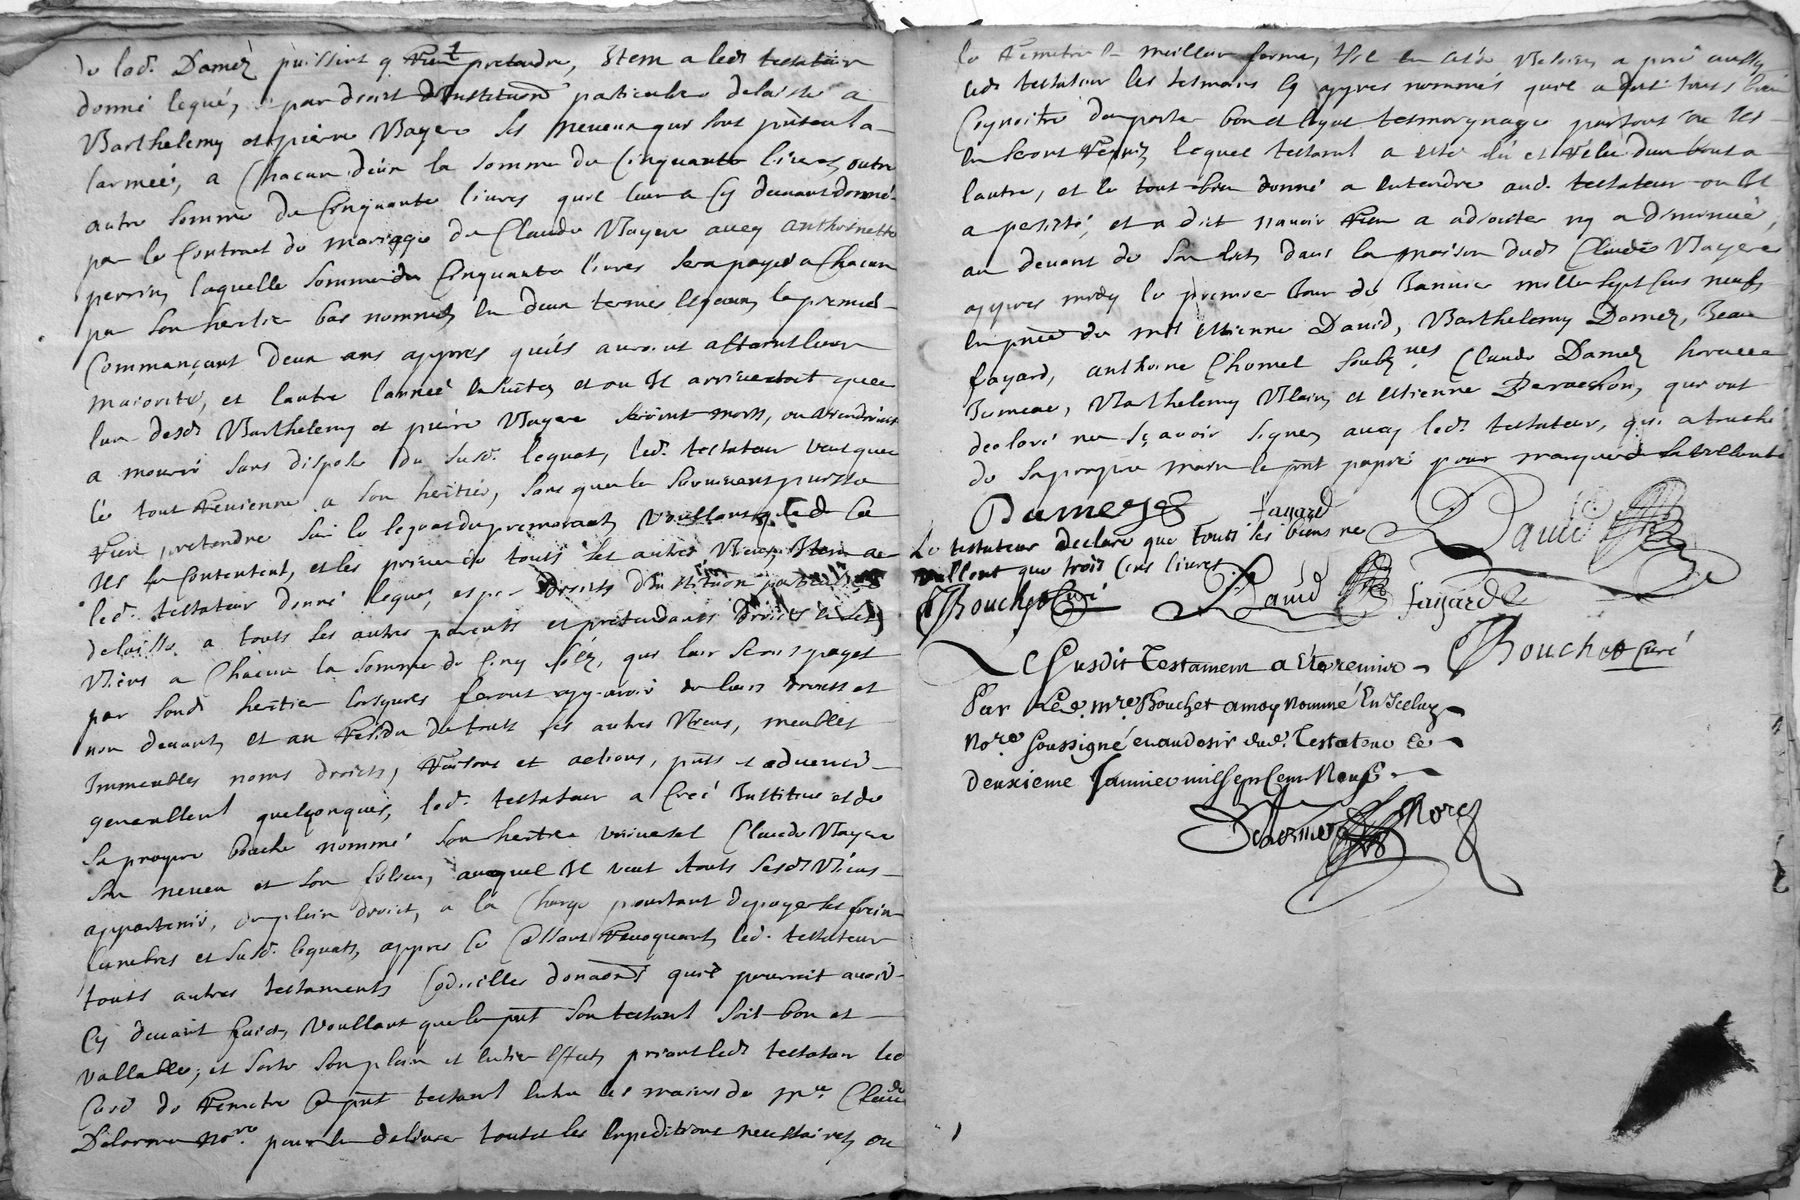 de lad. Damez puissent rien pretendre, Item a led. testateur
donné legué, et par droit d'institution particuliere delaissé a
Barthelemy et pierre Mayere ses neveux qui sont presen a
larmeé, a Chacun deux la somme de Cinquante livres, outre
autre somme de Cinquante livres quil leur a Cy devant donné
par le Contract de mariage de Claude Mayere avecq anthoinette
perrin, laquelle somme de Cinquante livres sera payeé a Chacun
par son heritier bas nommé, en deux termes esgaux, le premier
Commançant deux ans appres quils auront attaint leur
majorité, et lautre lanneé ensuite, et ou Il arriveroit que
lun desd. Barthelemy et pierre Mayere seroint morts, ou viendroint
a mourir sans disposer du susd. legat, led. testateur veut que
le tout revienne a son heritier, sans que le survivant puisse
rien pretendre sur le legat du premourant, voullant que de Ce
Ils se Contentent, et les prive de touts ses autres biens, Item a
led. testateur donné legué, et par droits d'institution particuliere
delaissé a touts ses autres parents et pretendants droicts en ses
biens a Chacun la somme de Cinq solz, qui leur seront payés
par sond. heritier lorsquils feront apparoir de leurs droits et
non devant, et au residu de touts ses autres biens, meubles
Immeubles noms droicts, raisons et actions, pnts et advenir
generallemt quelconques, led. testateur a Creé Institué et de
sa propre bouche nommé son heritier universel Claude Mayere
son neveu et son filleul, auquel Il veut touts sesd. biens
appartenir, de plein droict, a la Charge pourtant de payer ses frais
funebres et susd. legats, appres Ce Cassant revoquant, led. testateur
touts autres testaments Codicilles donaons quil pourroit avoir
Cy devant faict, voullant que le pnt son testamt soit bon et
vallable, et sorte son plein et entier effect, priant led. testateur led.
Curé de remettre Ce pnt testamt entre les mains de Mre Claude
Delorme Nore pour en delivrer toutes les expeditions necessaires, ou
le remettre meilleur forme,
led. testateur les tesmoins Cy appres nommés quil a dit touts bien
Cognoitre de porter bon et loyal tesmoignage
en seront requis, lequel testamt a esté lû et relû dun bout a
lautre, et le tout bien donné a entendre aud. testateur ou Il
a persisté, et a dict navoir rien a adjouter ny a diminuer,
au devant de son lict, dans la maison dud. Claude Mayere
appres midy le premier Jour de Janvier mille sept Cens neuf,
en pnce de mre Estienne David, Barthelemy Damez, Jean
fayard, anthoine Chomel soubznes Claude Damez,
Barthelemy et Estienne Derachon, qui ont
declaré ne sçavoir signer avecq led. testateur, qui a touché
de sa propre main le pnt papier pour marque de sa volonté
Damezes fayard David
Le testateur declare que touts ses biens ne
vallent que trois Cens livres
Bouchet Curé David fayard
Le susdit testament a eté remis Bouchet Curé
Par Led. mre Bouchet a moy nommé En Iceluy
Nore soussigné du desir dud. Testateur Ce
deuxieme Janvier mil sept cent Neuf
Delorme Nore